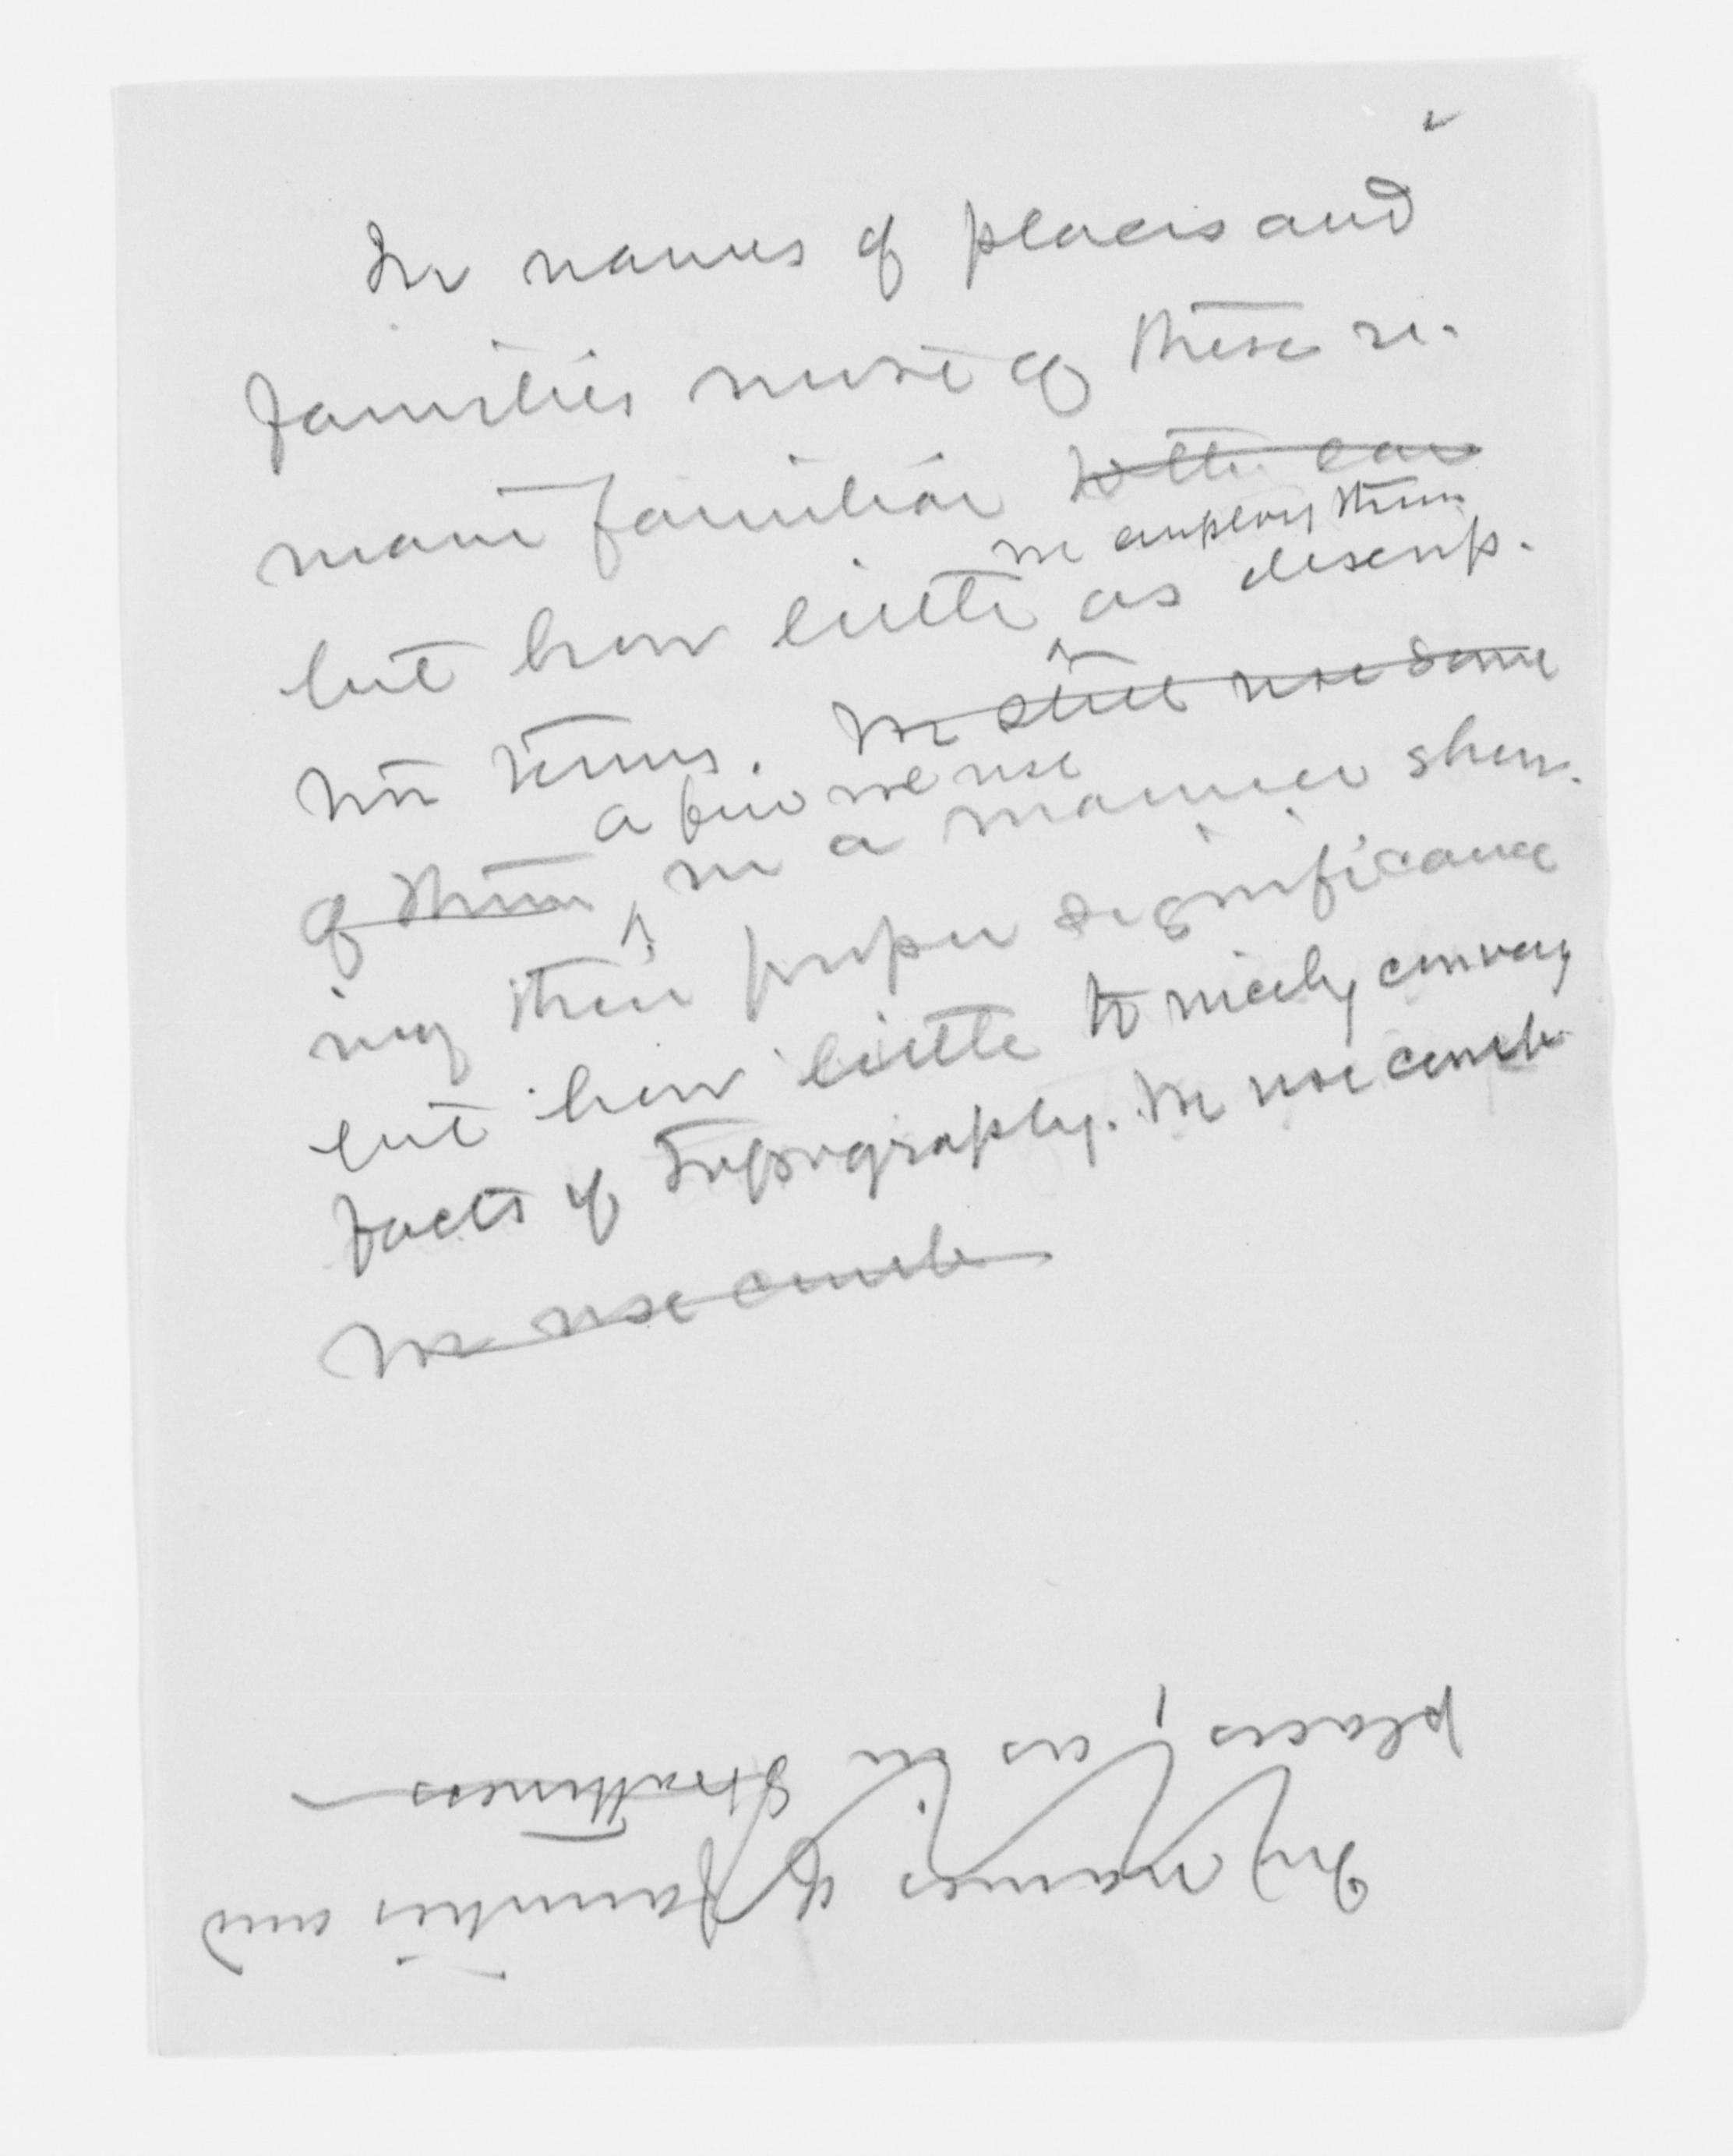 In names of places and
families most of these re-
main familiar to the ear
we employ them
but how little as descrip-
tive terms. We still use some
a few we use
of them in a manner show-
ing their proper significance
but how little to nicely convey
facts of topography. We use comb
We use comb
In names of families and
places, as in Strathness